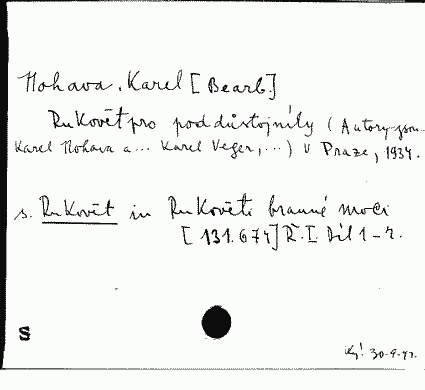 Hohava, Karel [Bearb.]
Rukovět pro poddůstojníky (Autory jsou
Karel Hohava a... Karel Veger,...) V Praze, 1934.
s. Rukovět in Rukověti branné moci
[131.674] Ř. I. Díl 1-2.
S
30-9-42.